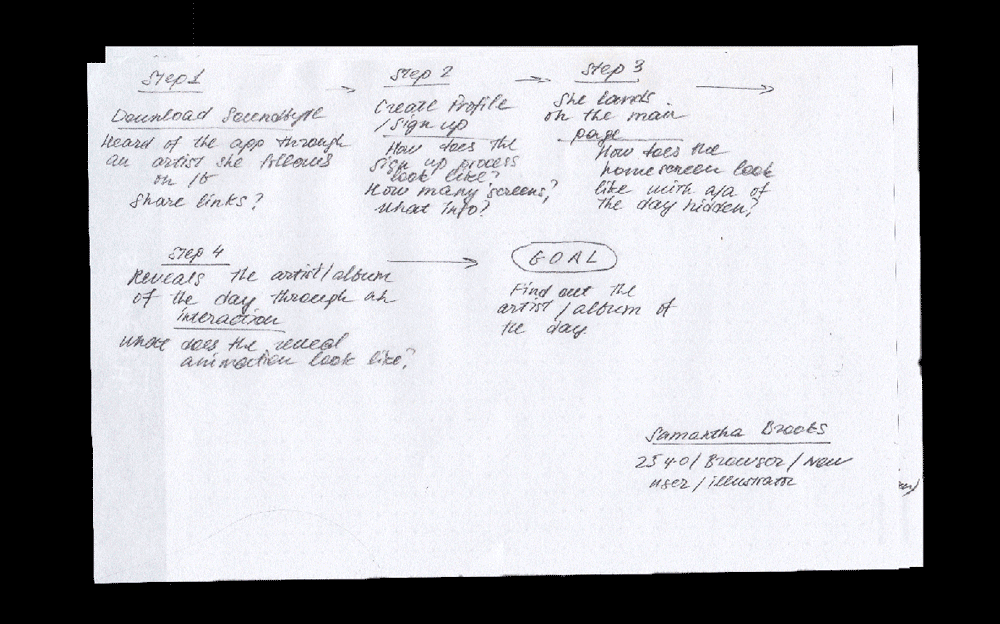 Step 1
Download Soundbyte
Heard of the app through
an artist she follows
on IG
Share links?
Step 2
Create Profile
/ Sign up
How does the
sign up process
look like?
How many screens?
What Info?
Step 3
She lands
on the main
page
How does the
homescreen look
like with a/a of
the day hidden?
Step 4
Reveals the artist/album
of the day through an
interaction
What does the reveal
animation look like?
GOAL
Find out the
artist/album of
the day
Samantha Brooks
25 y.o/Browser/New
user/illustrator